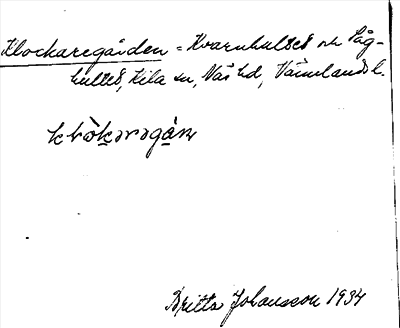 Klockaregården = Kvarnhultet och Såg-
hultet, Kila sn, Näs hd, Värmlands l.
Britta Johansson 1934